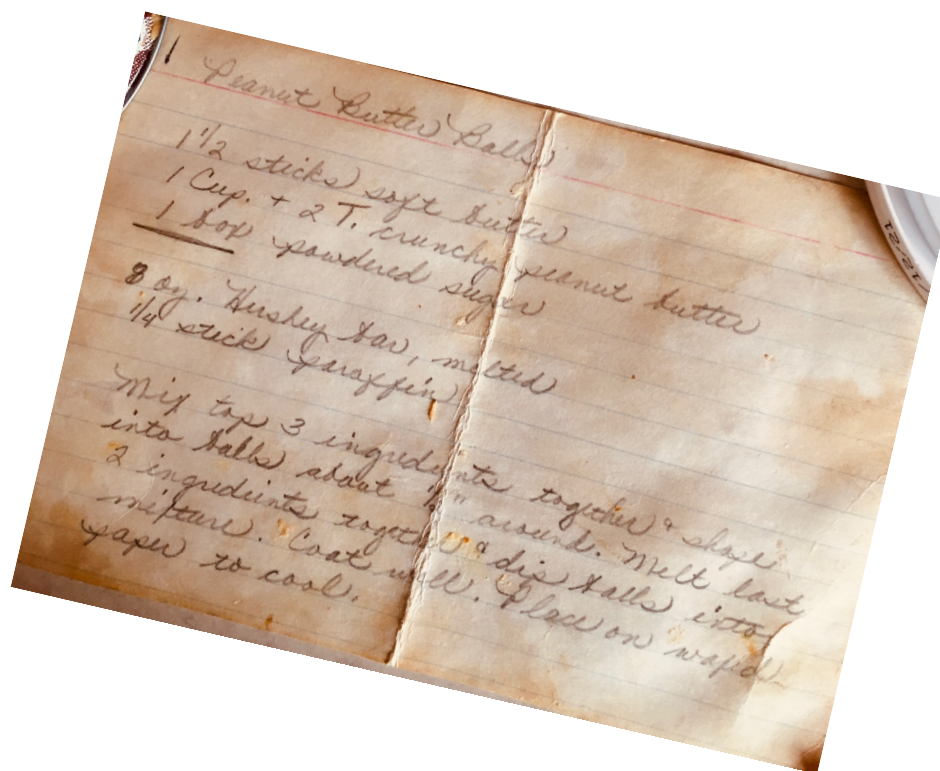 Peanut Butter Balls
1 1/2 sticks soft butter
1 Cup. + 2 T. crunchy peanut butter
1 box powdered sugar
8 oz. Hershey bar, melted
1/4 stick paraffin
Mix top 3 ingredients together & shape
into balls about 1" around. Melt last
2 ingredients together & dip balls into
mixture. Coat well. Place on waxed
paper to cool.
12-21